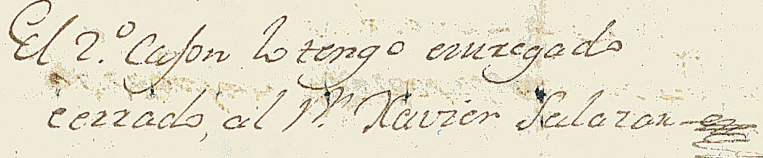 El 2.º Cajon lo tengo entregado
cerrado, al Sr. Xavier Salazar